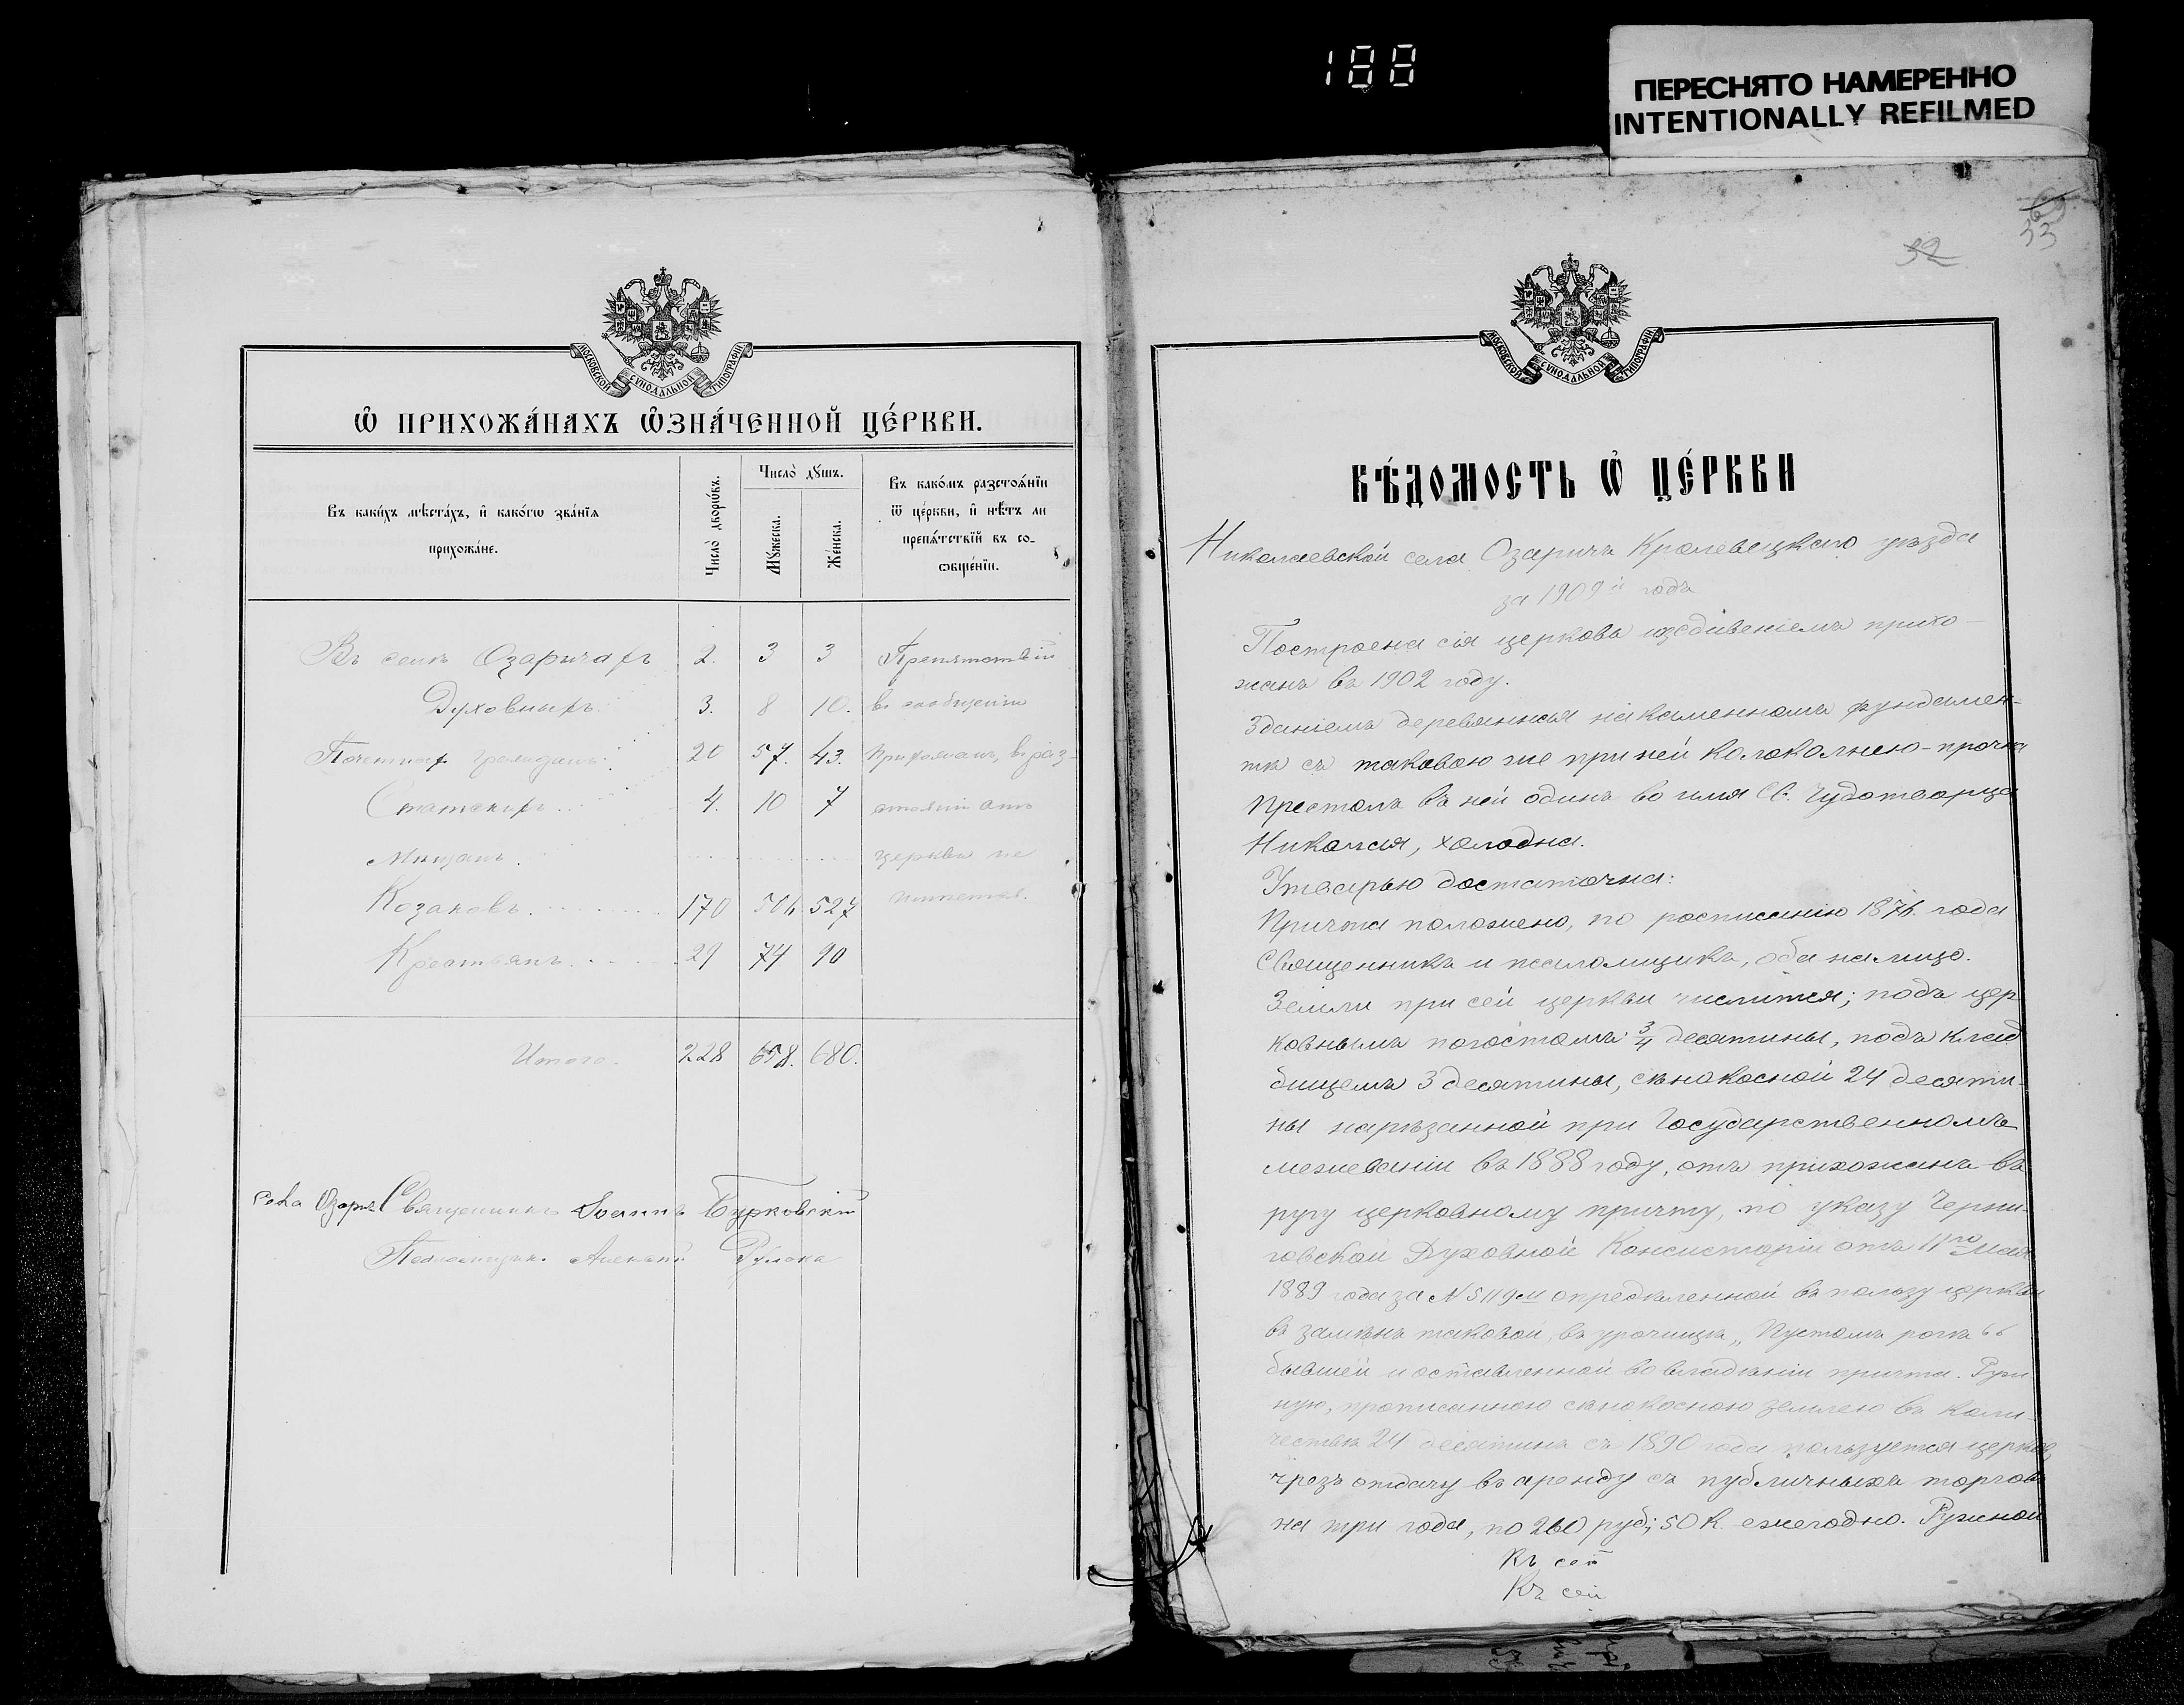 188
ПЕРЕСНЯТО НАМЕРЕННО
INTENTIONALLY REFILMED
МОСКОВСКОЙ СѴНОДАЛЬНОЙ ТИПОГРАФІИ
Ѿ ПРИХОЖА́НАХЪ ѾЗНА́ЧЕННОЙ ЦЕ́РКВИ.
Въ каки́хъ мѣста́хъ, и҆ како́гѡ зва́нїѧ
прихожа́не.
Число̀ дворѡ́въ.
Число̀ дꙋ́шъ.
Мꙋ́жеска.
Же́нска.
Въ како́мъ разстоѧ́нїи
ѿ це́ркви, и҆ нѣ́тъ ли
препѧ́тствїй въ со-
ѻбще́нїи.
Въ селѣ Озаричахъ 2. 3 3 Препятствій
Духовныхъ 3. 8 10. въ сообщеніи
Почетныхъ гражданъ 20 57. 43. прихожанъ, въ раз-
Статскихъ 4. 10 7 стояніи отъ
Мѣщанъ. церкви не
Козаковъ 170 506 527 имѣется.
Крестьянъ 29 74 90
Итого. 228 658. 680.
села Озаричъ Священникъ Іоаннъ Бурковскій
Псаломщикъ Алексѣй
32
33
МОСКОВСКОЙ СѴНОДАЛЬНОЙ ТИПОГРАФІИ
ВѢ́ДОМОСТЬ Ѡ҆ ЦЕ́РКВИ
Николаевской села Озаричъ Кролевецкаго уѣзда
за 1909й годъ
Построена сія церковь иждивеніемъ прихо-
жанъ въ 1902 году.
Зданіемъ деревянная на каменномъ фундамен-
тѣ съ таковою же при ней колокольнею - прочна
Престолъ въ ней одинъ во имя Св. Чудотворца
Николая, холодна.
Утварью достаточна:
Причта положено, по росписанію 1876 года
Священникъ и псаломщикъ, оба на лицо.
Земли при сей церкви числится; подъ цер
ковнымъ погостомъ 3/4 десятины, подъ клад
бищемъ 3 десятины, сѣнокосной 24 десяти-
ны нарѣзанной при Государственномъ
межеваніи въ 1888 году, отъ прихожанъ въ
ругу церковному причту, по указу Черни-
говской Духовной Консисторіи отъ 11го мая
1889 года за № 5119м опредѣленной въ пользу церкви
въ замѣнъ таковой, въ урочищѣ „Пустомъ рогѣ“
бывшей и оставленной во владѣніи причта. Руж
ную, прописанною сѣнокосною землею въ коли-
чествѣ 24 десятинъ съ 1890 года пользуется церковь
чрезъ отдачу въ аренду съ публичныхъ торговъ
на три года, по 260 руб; 50 к. ежегодно. Ружной
Къ сей
Къ сей